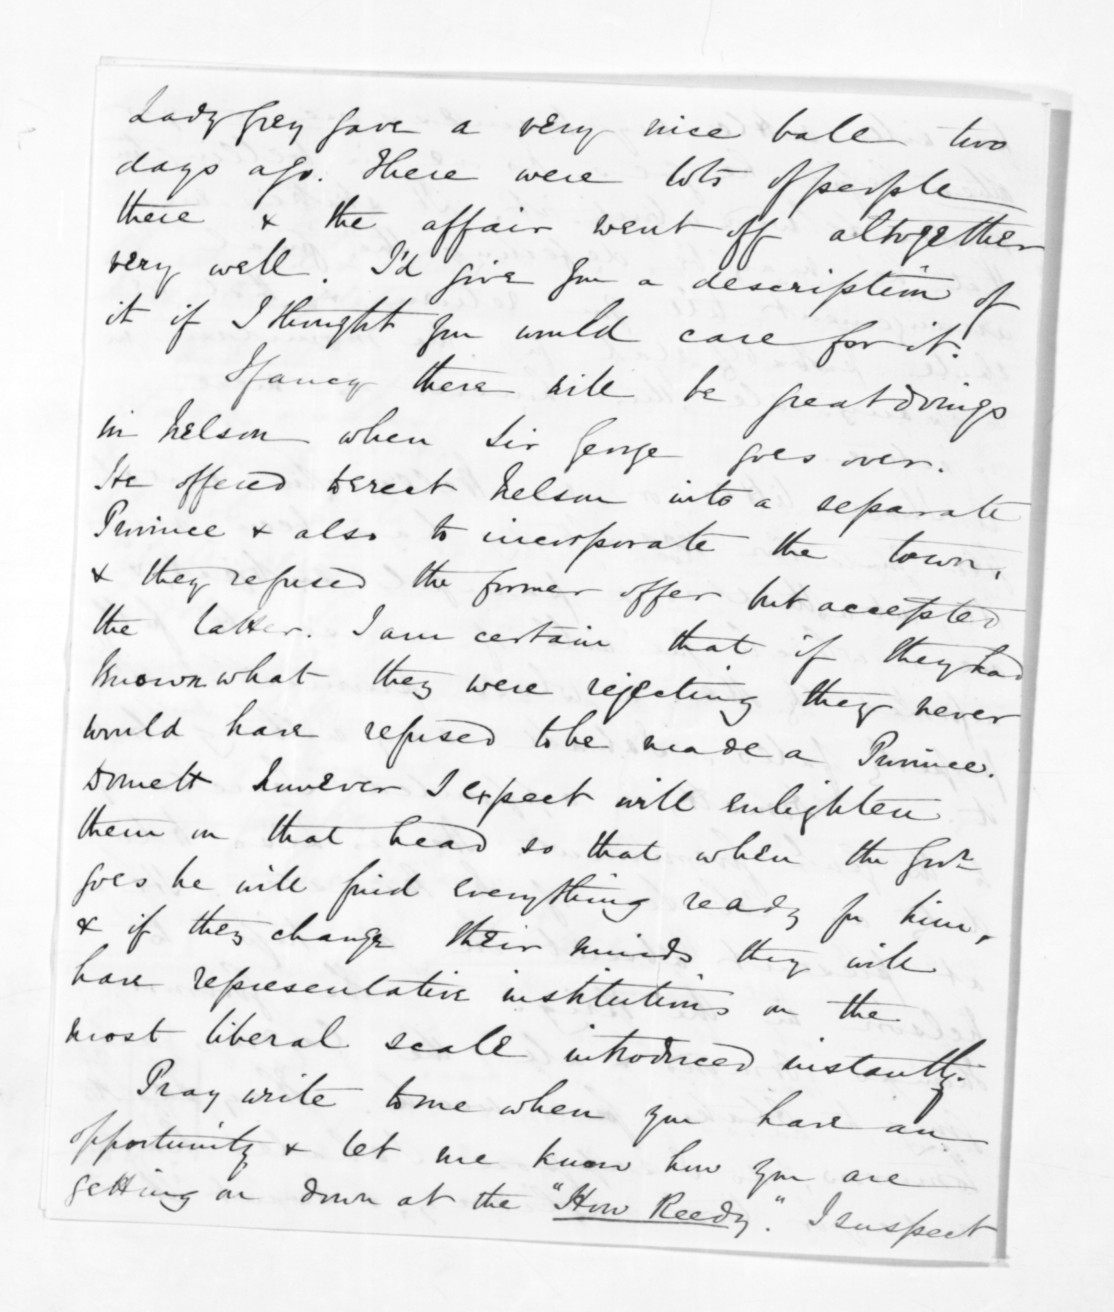 Lady Grey gave a very nice bale two
days ago. There were lots of people
there & the affair went off altogether
very well I'd give you a description of
it if I thought you would care for it.
I fancy there will be great doings
in Nelson when Sir George goes over.
He offered to erect Nelson into a separate
Province & also to incorporate the town,
& they refused the former offer but accepted
the latter. I am certain that if they had
known what they were rejecting they never
would have refused to be made a Province.
Domett however I expect will enlighten
them on that head so that when the Govr
goes he will find everything ready for him,
& if they change their minds they will
have representative institutions on the
most liberal scale introduced instantly.
Pray write to me when you have an
opportunity & let me know how you are
getting on down at the "How Reedy". I suspect